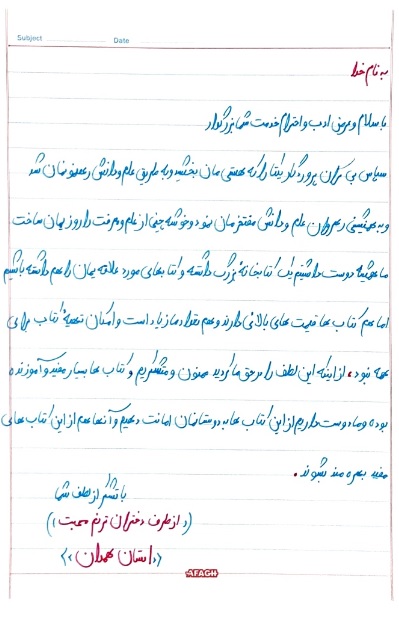 Subject
Date
به نام خدا
با سلام و عرض ادب و احترام خدمت شما بزرگوار
سپاس بی کران پروردگار یکتا را که هستی مان بخشید و به طریق علم و دانش رهنمونمان شد
و به همنشینی رهروان علم و دانش مفتخرمان نمود و خوشه چینی از علم و معرفت را روزیمان ساخت
ما همیشه دوست داشتیم یک کتابخانهٔ بزرگ داشته و کتابهای مورد علاقه یمان را هم داشته باشیم
اما هم کتاب ها قیمت های بالائی دارند و هم تعداد ما زیاد است و امکان تهیهٔ کتاب برای
همه نبود، از اینکه این لطف را در حق ما کردید ممنون و متشکریم و کتاب ها بسیار مفید و آموزنده
بوده و ما دوست داریم از این کتاب ها به دوستانمان امانت دهیم و آنها هم از این کتاب های
مفید بهره مند شوند.
با تشکر از لطف شما
((از طرف دختران ترنم محبت))
((استان همدان))
AFAGH